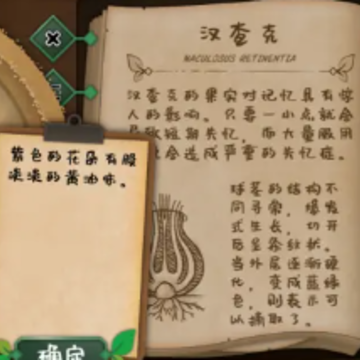 汉查克
MACULOSUS RETINENTIA
汉查克的果实对记忆具有惊
人的影响。只要一小点就会
导致短期失忆，而大量服用
就会造成严重的失忆症。
球茎的结构不
同寻常，爆发
式生长，切开
后呈条纹状。
当外层逐渐硬
化，变成蓝绿
色，则表示可
以摘取了。
紫色的花朵有股
淡淡的黄油味。
确定